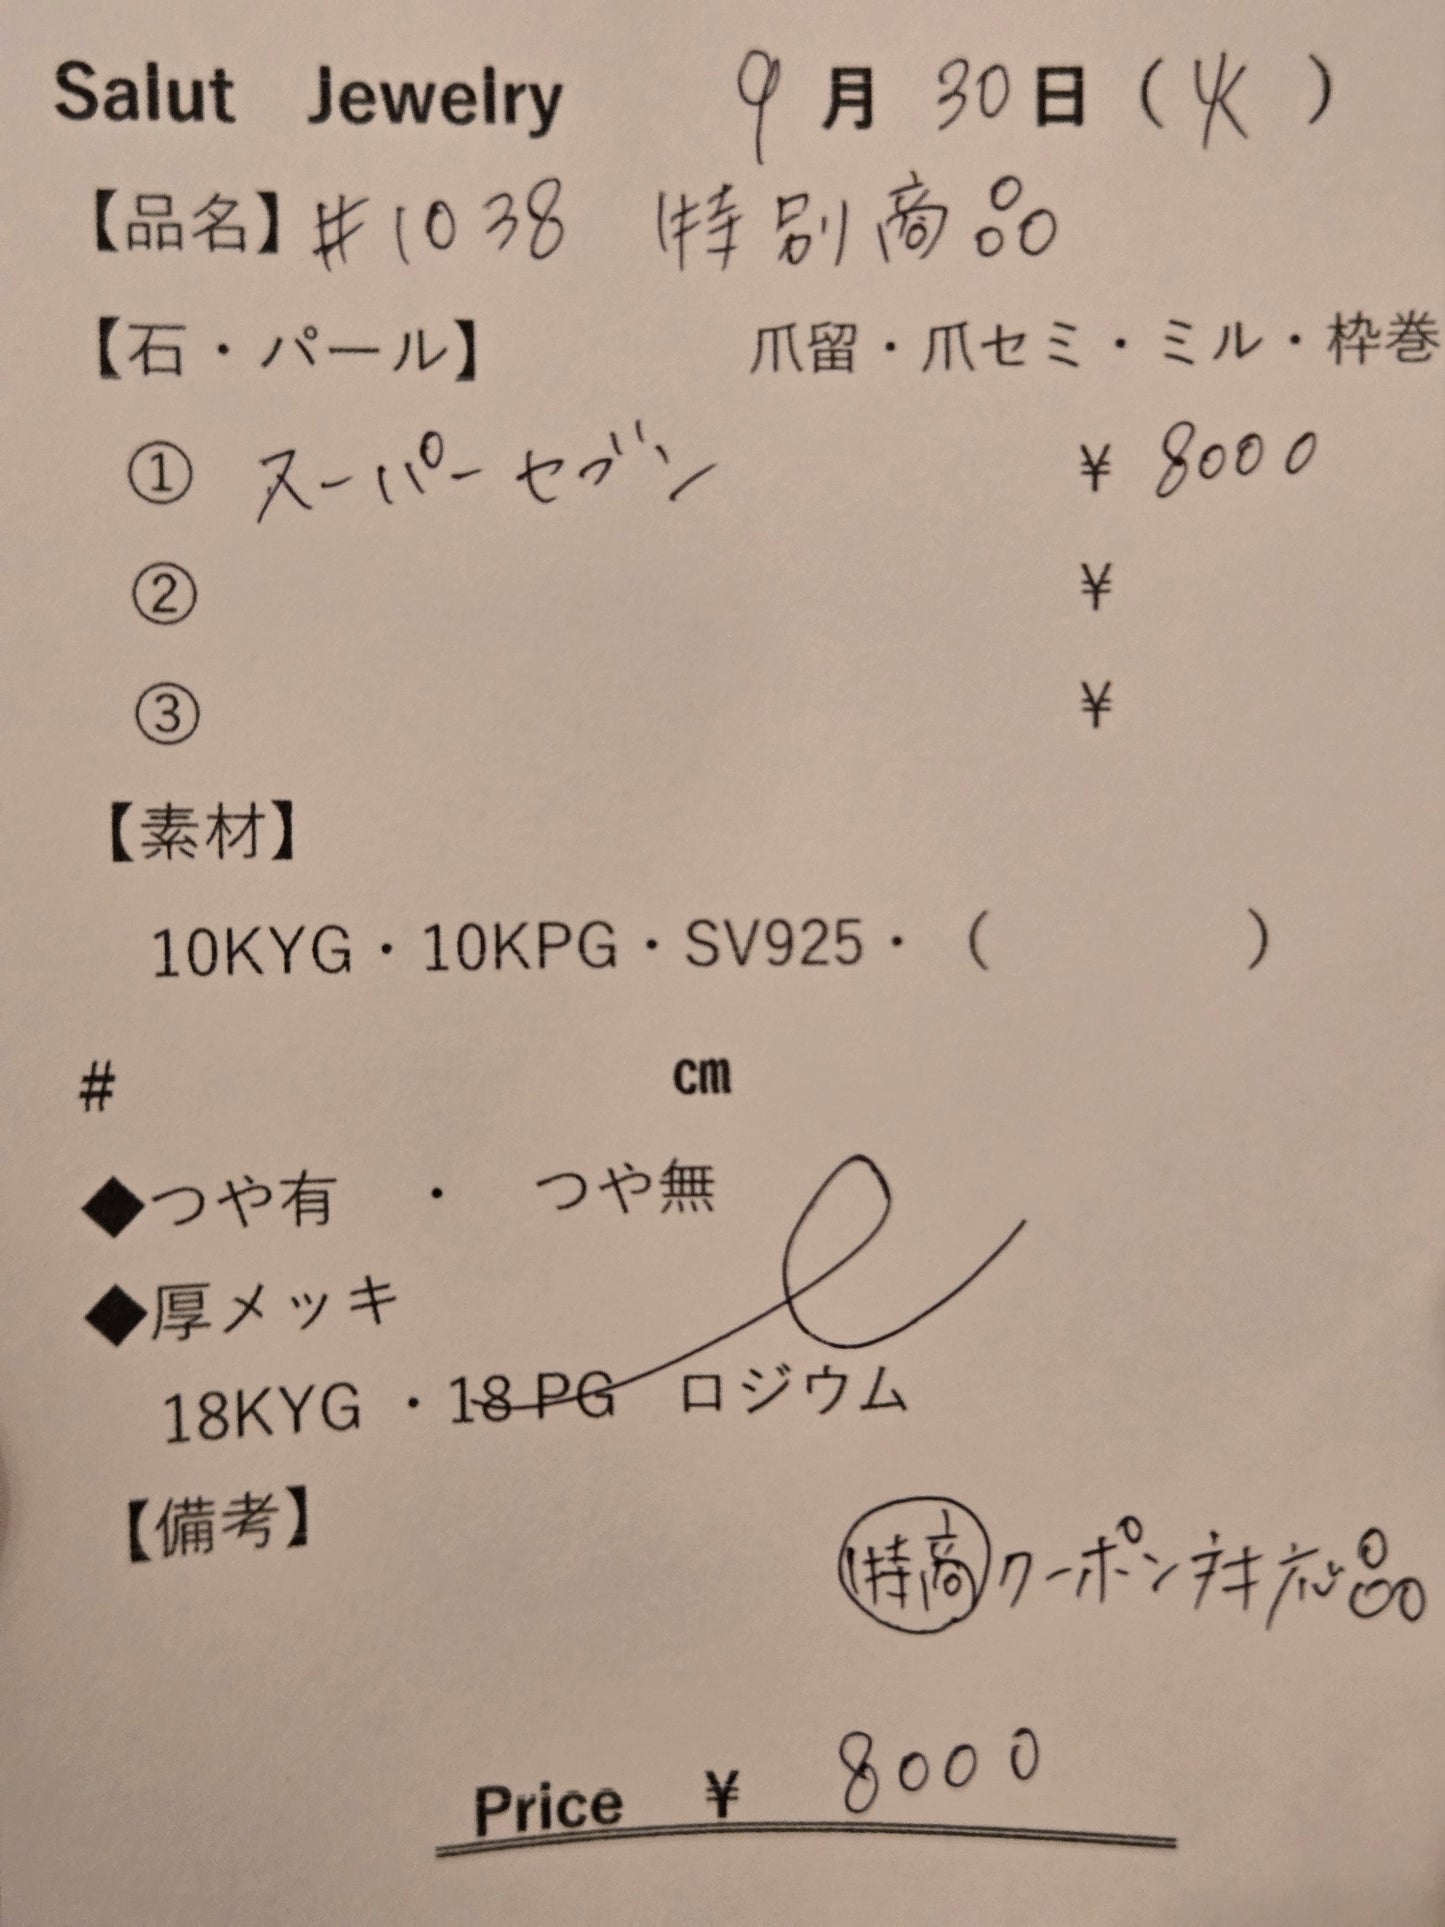 Salut Jewelry 9月30日(火)
【品名】#1038 特別商品
【石・パール】 爪留・爪セミ・ミル・枠巻
① スーパーセブン ¥8000
② ¥
③ ¥
【素材】
10KYG・10KPG・SV925・( )
# cm
◆つや有 ・ つや無
◆厚メッキ
18KYG ・18 PG ロジウム
【備考】
特商 クーポン対応品
Price ¥ 8000